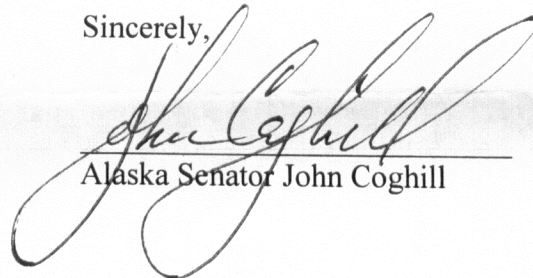 Sincerely,
John Coghill
Alaska Senator John Coghill